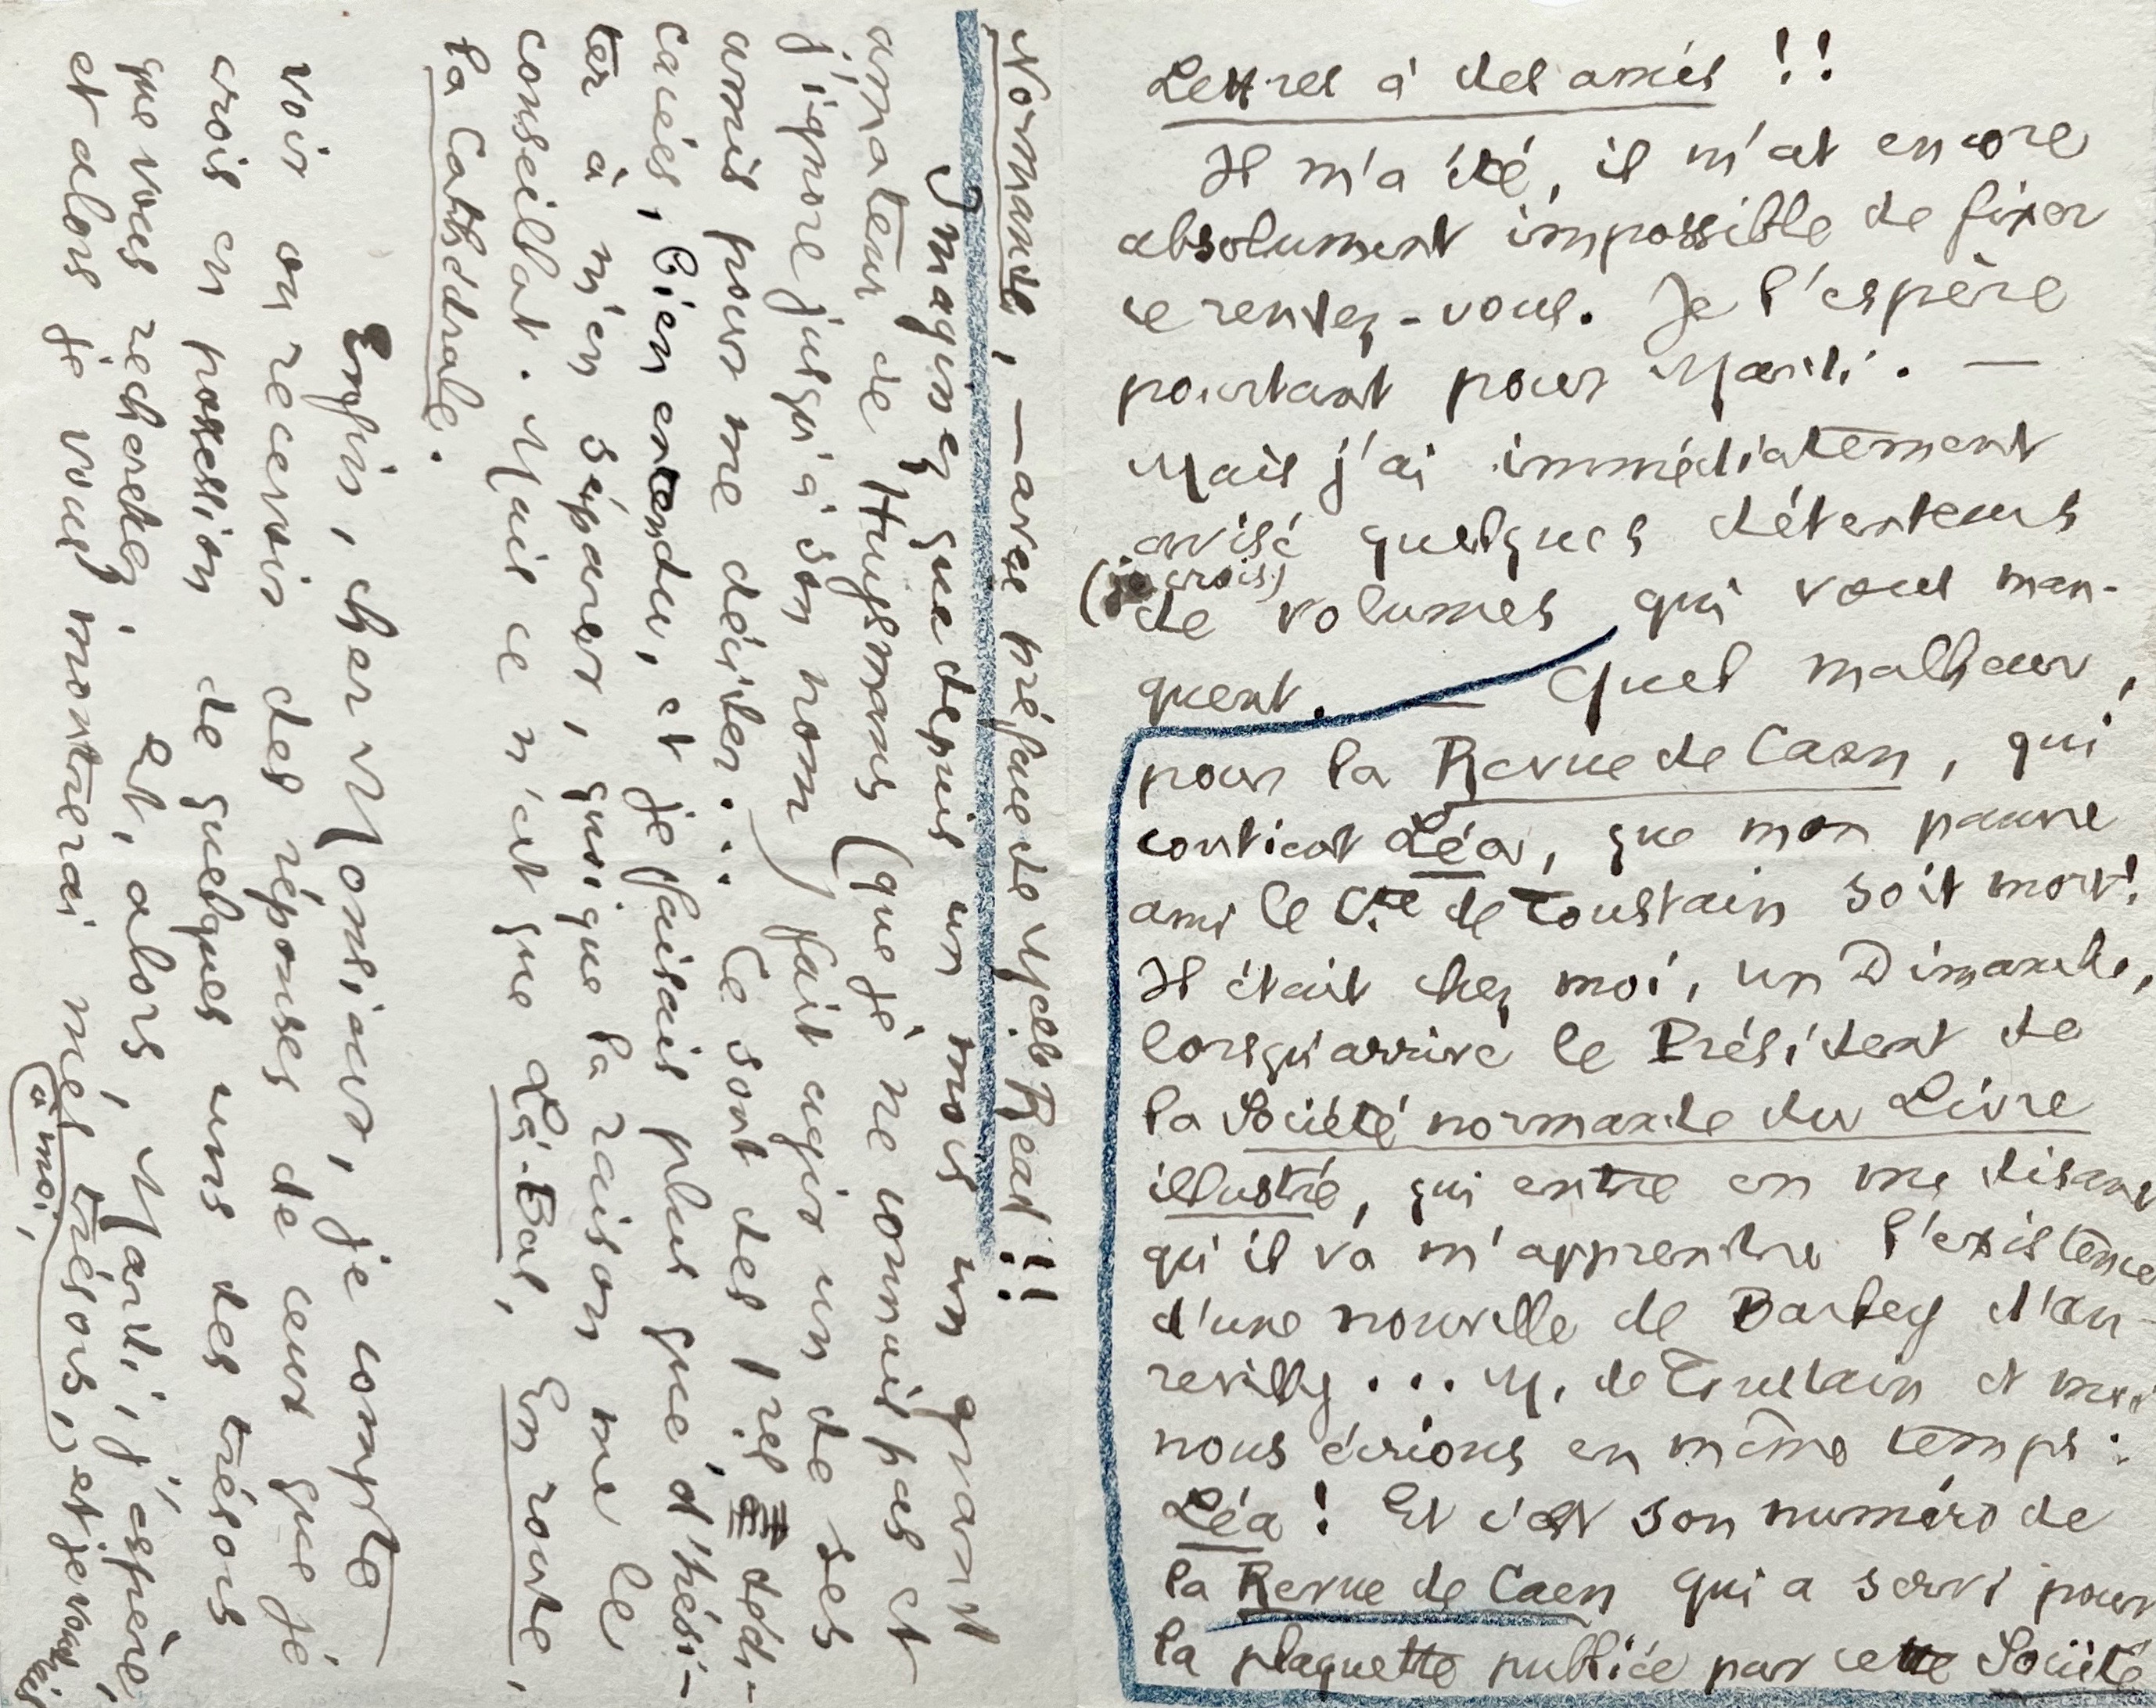 Lettres à des amis !!
Il m'a été, il m'est encore
absolument impossible de fixer
ce rendez-vous. Je l'espère
pourtant pour Mardi. —
Mais j'ai immédiatement
avisé quelques détenteurs
(je crois)
de volumes qui vous man-
quent. — Quel malheur,
pour la Revue de Caen, qui
contient Léa, que mon pauvre
ami le Cte de Toustain soit mort!
Il était chez moi, un Dimanche,
lorsqu'arrive le Président de
la Société normande du Livre
illustré, qui entre en me disant
qu'il va m'apprendre l'existence
d'une nouvelle de Barbey d'Au-
revilly... M. de Toustain et moi
nous écrions en même temps :
Léa ! Et c'est son numéro de
la Revue de Caen qui a servi pour
la plaquette publiée par cette Société
Normande, — avec préface de Melle Read !!!
Imaginez que depuis un mois un grand
amateur de Huysmans (que je ne connais pas et
j'ignore jusqu'à son nom) fait agir un de ses
amis pour me décider... Ce sont des pres dédi-
cacés, bien entendu, et je faisais plus que d'hési-
ter à m'en séparer, quoique la raison me le
conseillat. Mais ce n'est que Là-Bas, En route,
La Cathédrale.
Enfin, cher Monsieur, je compte
voir ou recevoir des réponses de ceux que je
crois en possession de quelques uns des trésors
que vous recherchez. Et, alors, Mardi, j'espère,
et alors je vous montrerai mes trésors, et je
(à moi,